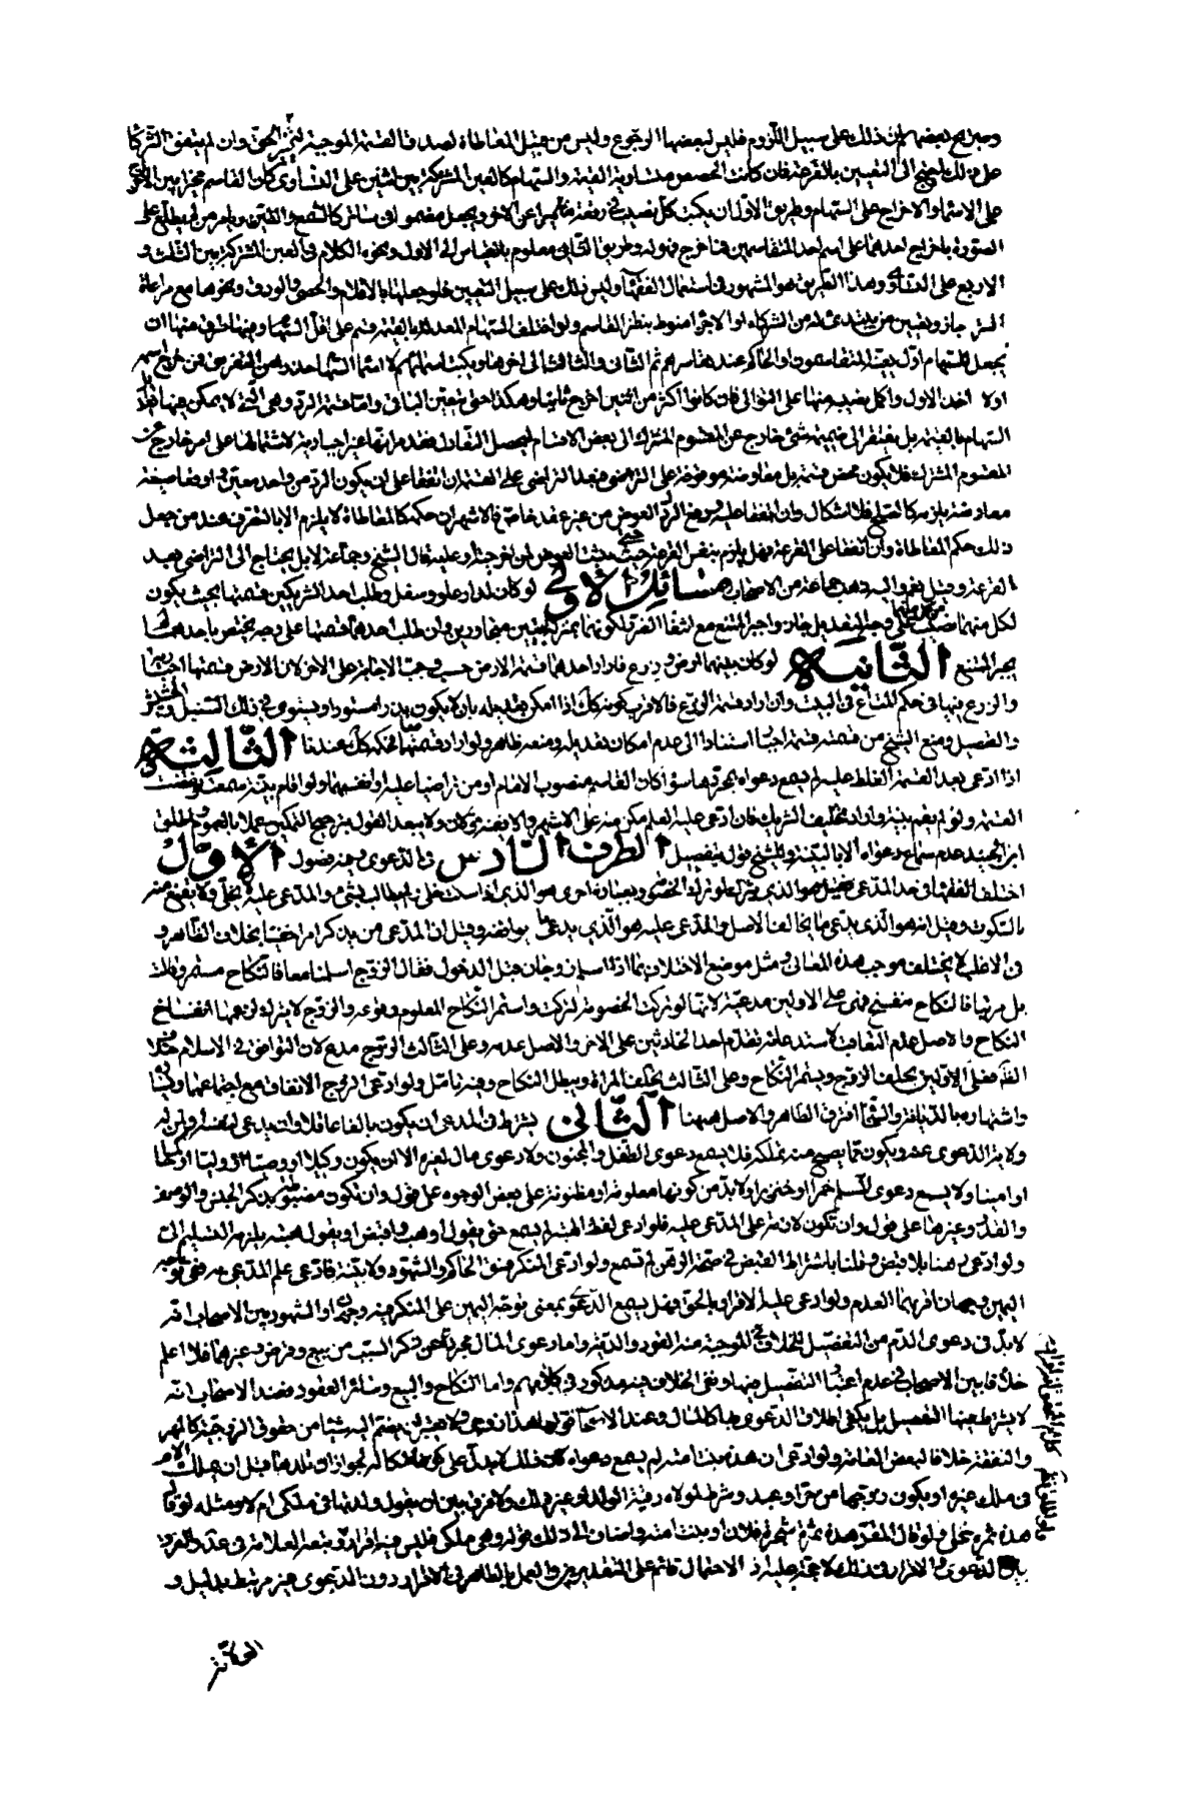 وصرح بعضهم بان ذلك على سبيل اللزوم فليس لبعضها الرجوع وليس من قبيل المعاطاة لصدق القسمة الموجبة لتميز الحق وان لم يتفق الشركا
على ذلك احتيج الى التعيين بالقرعة فان كانت الحصص متساوية القيمة والسهام كالعين المشتركة بين اثنين على التساوى كان القاسم مخيرا بين الاخراج
على الاسماء والاخراج على السهام وطريق الاول ان يكتب كل نصيب فى رقعة مميزا عن الاخر ويجعل مضموما فى ساتر كالشمع والطين ويامر من لم يطلع على
الصورة باخراج احدهما على اسم احد المتقاسمين فما خرج فهو له وطريق الثانى معلوم بالقياس الى الاول ونحوه الكلام فى العين المشتركة بين الثلث و
الاربع على التساوى وهذا الطريق هو المشهور فى استعمال الفقهاء وليس ذلك على سبيل التعيين فلو جعلها بالاقلام والحصى والورق ونحوها مع مراعاة
الستر جاز وتعيين من يبتدئ له من الشركاء او الاجزاء منوط بنظر القاسم ولو اختلف السهام المعدلة بالقيمة قسم على اقل السهام ومنها طرق منها ان
يجعل للسهام اول يعينه المتقاسمون او الحاكم عند تعاسرهم ثم الثانى والثالث الى اخرها ويكتب اسمائهم لا اسماء السهام حذرا من التفرق فمن خرج اسمه
اولا اخذ الاول واكمل نصيبه منها على التوالى فان كانوا اكثر من اثنين اخرج ثانيا وهكذا حتى يتعين الباقى واما قسمة الرد وهى التى لا يمكن فيها تعديل
السهام بالقيمة بل يفتقر الى ضميمة شئ خارج عن المقسوم المشترك الى بعض الاقسام ليحصل التعادل فقد مر انها غير اجبارية لاشتمالها على امر خارج عن
المقسوم المشترك فلا يكون محض قسمة بل معاوضة موقوفة على التراضى فبعد التراضى على القسمة ان اتفقا على ان يكون الرد من واحد معين واوقعا صيغة
معاوضة يلزم كالصلح فلا اشكال وان اتفقا عليه ودفع الراد العوض من غير عقد خاص فالاشهر ان حكمه كالمعاطاة لا يلزم الا بالتصرف عند من جعل
ذلك حكم المعاطاة وان اتفقا على القرعة فهل يلزم بنفس القرعة حتى يثبت العوض لمن اخرجته وعليه قال الشيخ وجماعة لا بل يحتاج الى التراضى بعد
القرعة وقيل نعم واليه ذهب جماعة من الاصحاب مسائل الاولى لو كان لدار علو وسفل وطلب احد الشريكين قسمتها بحيث يكون
لكل منهما نصيب من العلو والسفل بالتعديل جاز واجبر الممتنع مع انتفاء الضرر لكونهما بمنزلة بيتين متجاورين وان طلب احدهما قسمتها على وجه يختص باحدهما لم
يجبر الممتنع الثانية لو كان بينهما ارض وزرع فاراد احدهما قسمة الارض حسب وجبت الاجابة على الاخر لان الارض قسمتها اجبارية
والزرع فيها فى حكم المتاع فى البيت وان اراد قسمة الزرع فالاقرب كونه كذلك اذا امكن تعديله بان لا يكون بذرا مستورا ويستوى فى ذلك السنبل والحشيش
والقصيل ومنع الشيخ من قسمته قسمة اجبار استنادا الى عدم امكان تعديله ومنعه ظاهر ولو اراد قسمتهما فحكمه كذلك عندنا الثالثة
اذا ادعى بعد القسمة الغلط عليه لم يسمع دعواه بمجردها سواء كان القاسم منصوب الامام او من تراضيا عليه او انفسهما ولو اقام بينة سمعت ونقضت
القسمة ولو لم يقم بينة واراد تحليف الشريك فان ادعى عليه العلم مكن منه على الاشهر والا ففيه قولان ولا يبعد القول بترجيح التمكين عملا بالعموم واطلق
ابن الجنيد عدم سماع دعواه الا بالبينة وللشيخ قول بتفصيل الطرف السادس فى الدعوى وفيه فصول الاول
اختلف الفقهاء فى حد المدعى فقيل هو الذى يترك لو ترك الخصومة وبعبارة اخرى هو الذى اذا سكت خلى ولم يطالب بشئ والمدعى عليه لا يخلى ولا يقنع منه
بالسكوت وقيل انه هو الذى يدعى ما يخالف الاصل والمدعى عليه هو الذى يدعى ما يوافقه وقيل ان المدعى من يذكر امرا خفيا بخلاف الظاهر و
فى الاغلب لا يختلف موجب هذه المعانى ومثل موضع الاختلاف بما اذا اسلم زوجان قبل الدخول فقال الزوج اسلمنا معا فالنكاح مستمر وقالت
بل مرتبا فالنكاح منفسخ فهى على الاولين مدعية لانها لو تركت الخصومة لتركت واستمر النكاح المعلوم وقوعه والزوج لا يترك لزعمها انفساخ
النكاح والاصل عدم التعاقب لاستدعائه تقدم احد الحادثين على الاخر والاصل عدمه وعلى الثالث الزوج مدع لان التوافق فى الاسلام خلاف
الظاهر فعلى الاولين يحلف الزوج ويستمر النكاح وعلى الثالث يحلف المراة ويبطل النكاح وفيه تامل ولو ادعى الزوج الانفاق مع اجتماعهما ويساره
واشتهاره بالديانة والسخاء افترق الظاهر والاصل ههنا الثانى يشترط فى المدعى ان يكون بالغا عاقلا وان يدعى لنفسه او لمن له
ولاية الدعوى عنه ويكون مما يصح منه تملكه فلا يسمع دعوى الطفل والمجنون ولا دعوى مال لغيره الا ان يكون وكيلا او وصيا او وليا او حاكما
او امينا ولا يسمع دعوى المسلم خمرا او خنزيرا ولابد من كونها معلومة او مظنونة على بعض الوجوه على قول وان تكون مضبوطة بذكر الجنس والوصف
والقدر وغيرها على قول وان تكون لازمة على المدعى عليه فلو ادعى لفظ الهبة لم يسمع حتى يقول او هب واقبض او يقول هبة يلزمه التسليم الى
ولو ادعى رهنا بلا قبض وقلنا باشتراط القبض فى صحة الرهن لم تسمع ولو ادعى المنكر فسق الحاكم او الشهود ولا بينة فادعى علم المدعى به ففى توجه
اليمين وجهان اقربهما العدم ولو ادعى عليه الاقرار بالحق فهل يسمع الدعوى بمعنى توجه اليمين على المنكر فيه وجهان والمشهور بين الاصحاب انه
لابد فى دعوى الدم من التفصيل للخلاف فى الموجبة منه القود والدية واما دعوى المال مجردة عن ذكر السبب من بيع وقرض وغيرهما فلا اعلم
خلافا بين الاصحاب فى عدم اعتبار التفصيل فيها ونفى الخلاف فيه مذكور فى كلامهم واما النكاح والبيع وسائر العقود فعند الاصحاب انه
لا يشترط فيها التفصيل بل يكفى اطلاق الدعوى بها كالمال وعند الاصحاب
والنفقة خلافا لبعض العامة ولو ادعى ان هذه بنت امته لم يسمع دعواه لان ذلك لا يدل على كونها ملكا له لجواز ان تلدها قبل ان يملك الام
فى ملك غيره او يكون زوجها من حر او عبد وشرط لمولاه رقية الولد او غير ذلك ولا فرق بين ان يقول ولدتها فى ملكى ام لا ومثله لو قال
هذه ثمرة نخلى ولو قال المقر هذه ثمرة شجرة فلان او بنت امته واضاف الى ذلك قوله وهى ملكى فليس فيه اقرار وتبعه العلامة فى عدة والفرق
بين الدعوى والاقرار فى ذلك لا حجة عليه اذ الاحتمال قائم على التقديرين والعمل بالظاهر فى الاقرار دون الدعوى غير مرتبط بدليل و